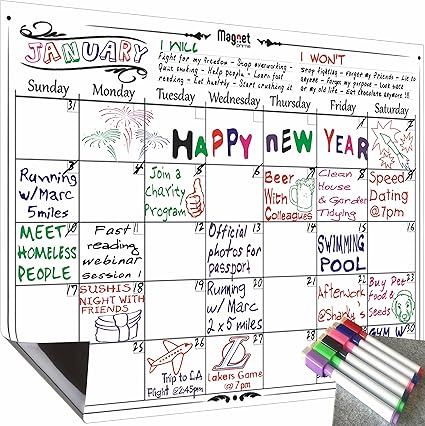 Magnet
JANUARY
I WILL
Fight for my freedom - Stop overworking -
Quit smoking - Help people - Learn fast
reading - Eat healthy - Start crushing it
I WON'T
Stop fighting - Forget my friends - Lie to
anyone - Forget my purpose - Look back
or my old life - Eat chocolate anymore !!!
Sunday Monday Tuesday Wednesday Thursday Friday Saturday
31 1 2
HAPPY NEW YEAR
3 4 5 6 7 8 9
Running
w/ Marc
5 miles
Join a
charity
Program
Beer
With
Colleagues
Clean
House
& Garden
Tidying
Speed
Dating
@7pm
10 11 12 13 14 15 16
MEET
HOMELESS
PEOPLE
Fast
reading
webinar
session 1
Official
photos for
passport
SWIMMING
POOL
17 18 19 20 21 22 23
SUSHIS
NIGHT WITH
FRIENDS
Running
w/ Marc
2 x 5 miles
Afterwork
@Sharky's
Buy Pet
food &
Seeds
25 26 27 28 30
Trip to LA
Flight @2:45pm
Lakers Game
@7pm
GYM W